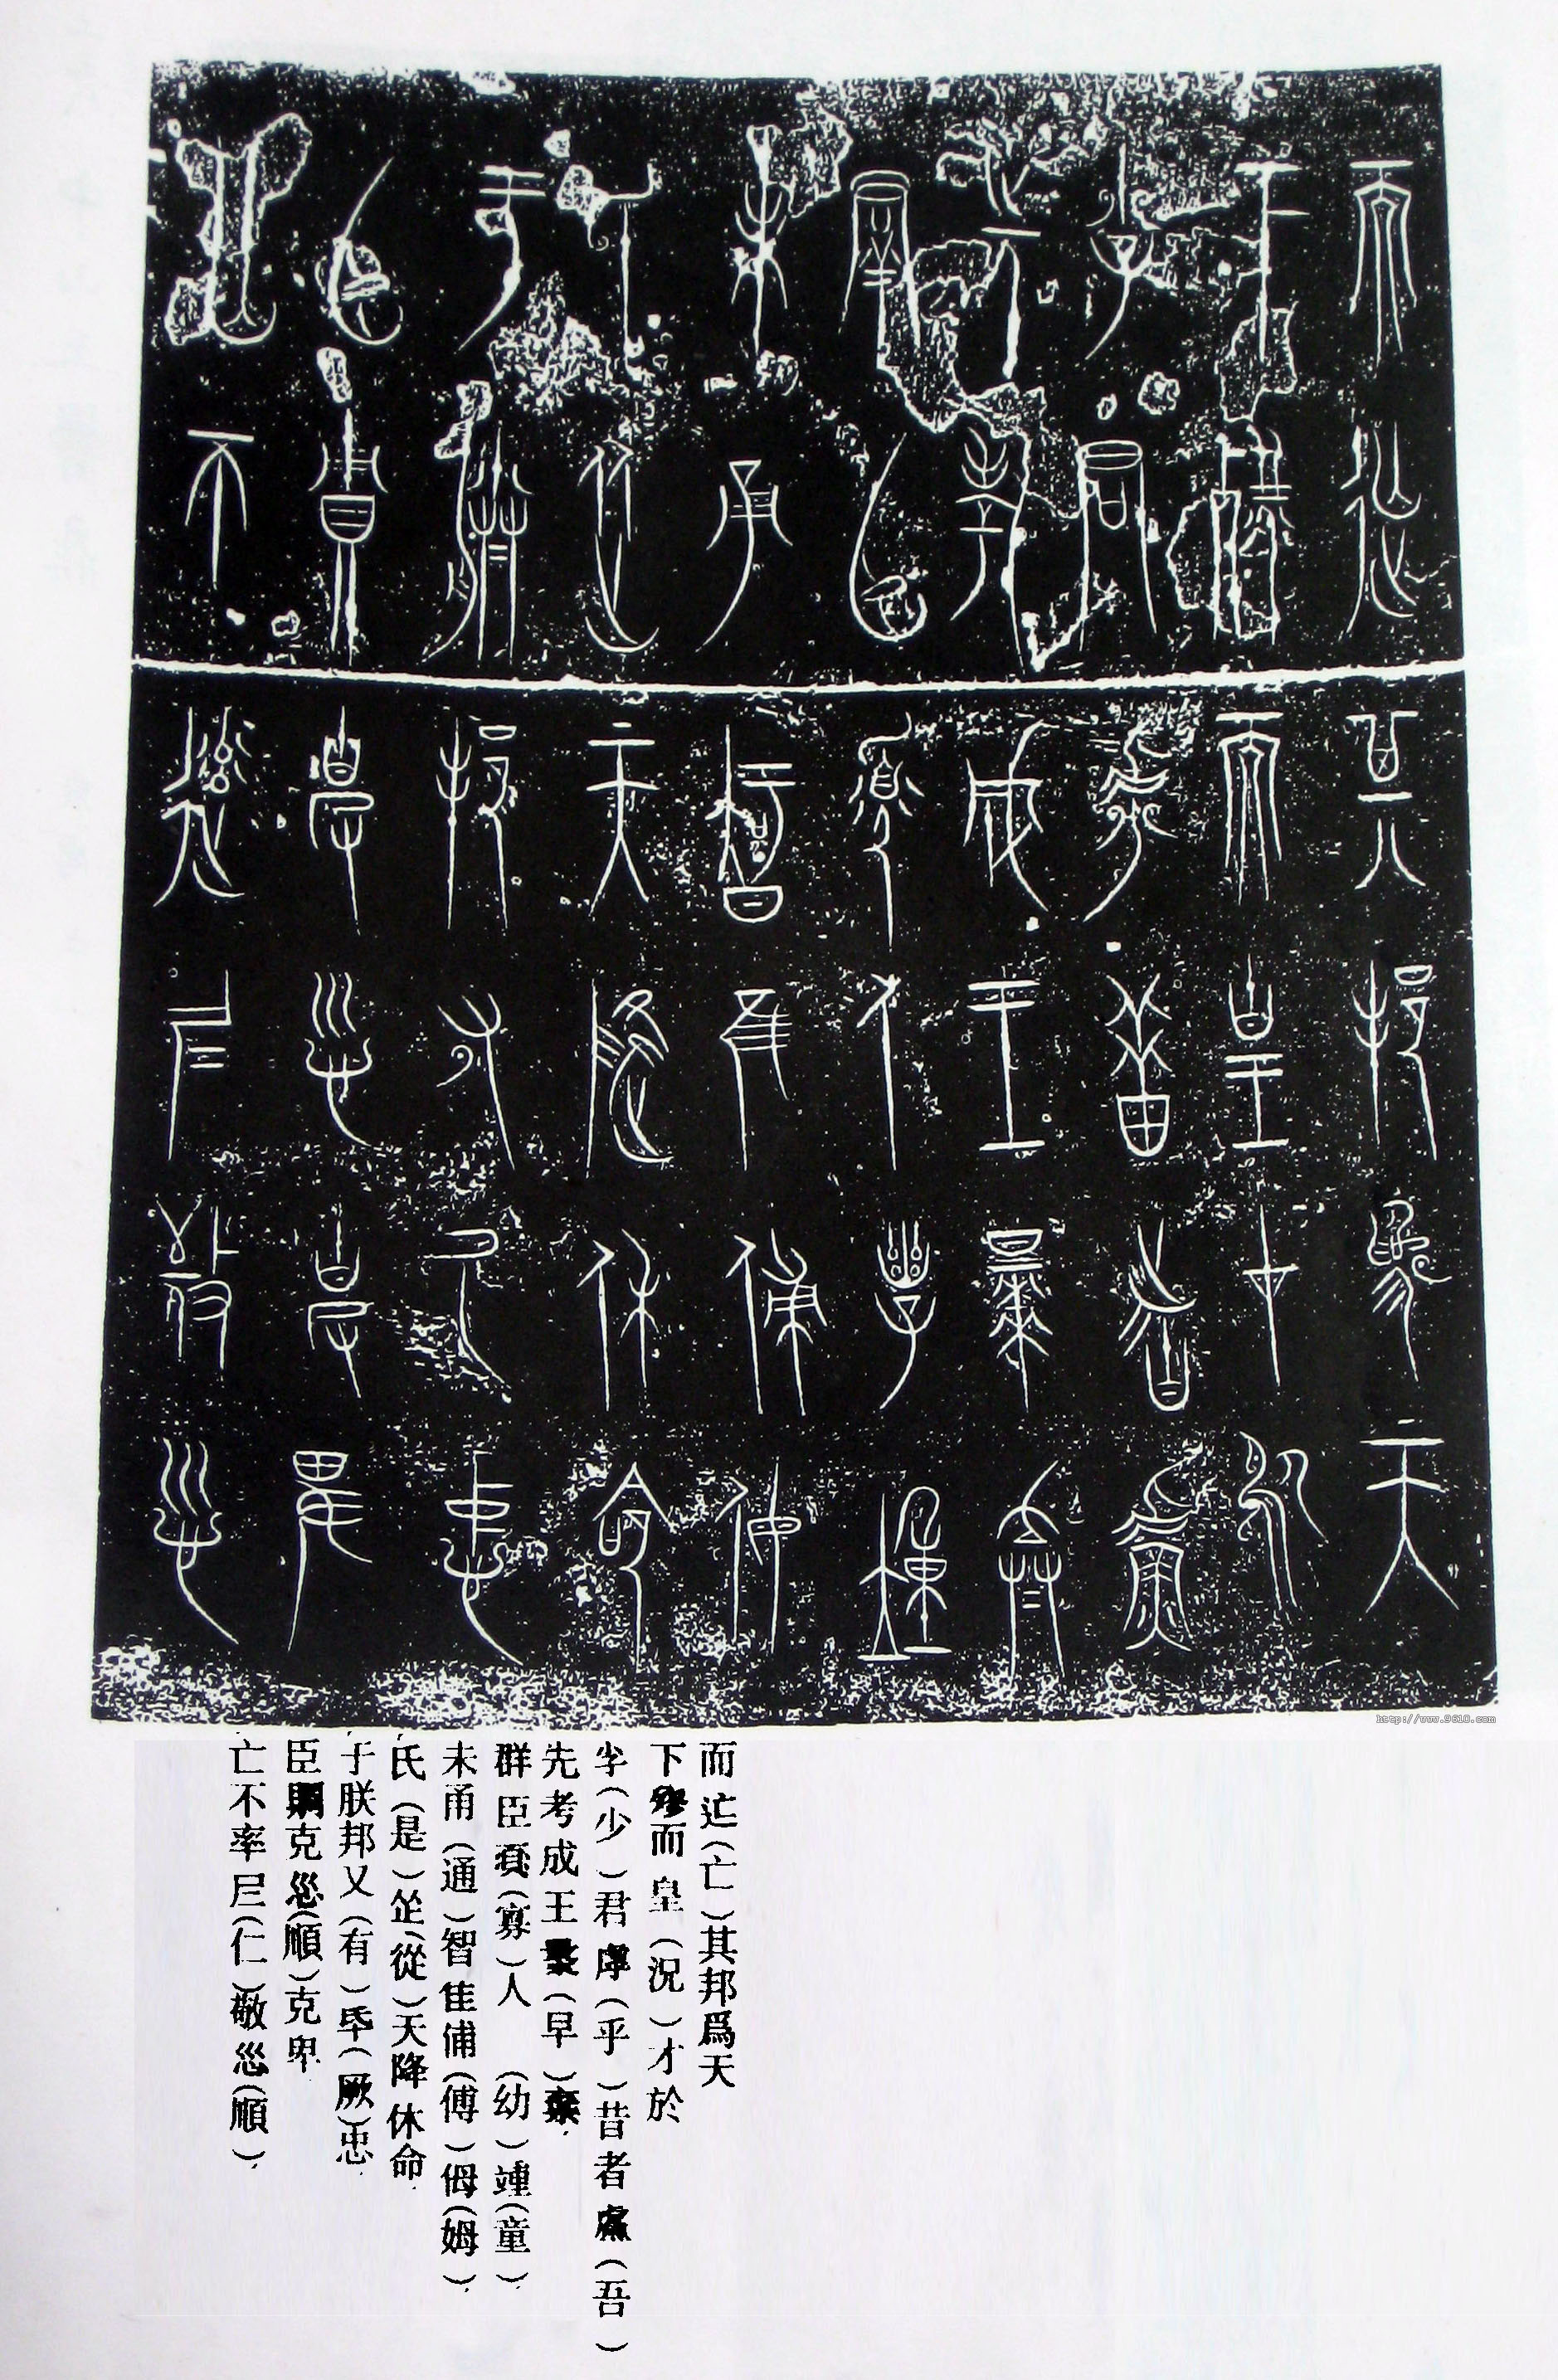 而𨒌(亡)其邦爲天
下僇而皇(況)才於
㝊(少)君虖(乎)昔者𫊣(吾)
先考成王曩(早)棄
群臣寡(寡)人(幼)𥪰(童)
未甬(通)智隹俌(傅)㑄(姆)
氏(是)從(從)天降休命
于朕邦又(有)氒(厥)忠
臣賙克𢖽(順)克卑
亡不率𡰥(仁)敬𢖽(順)
http://www.9610.com